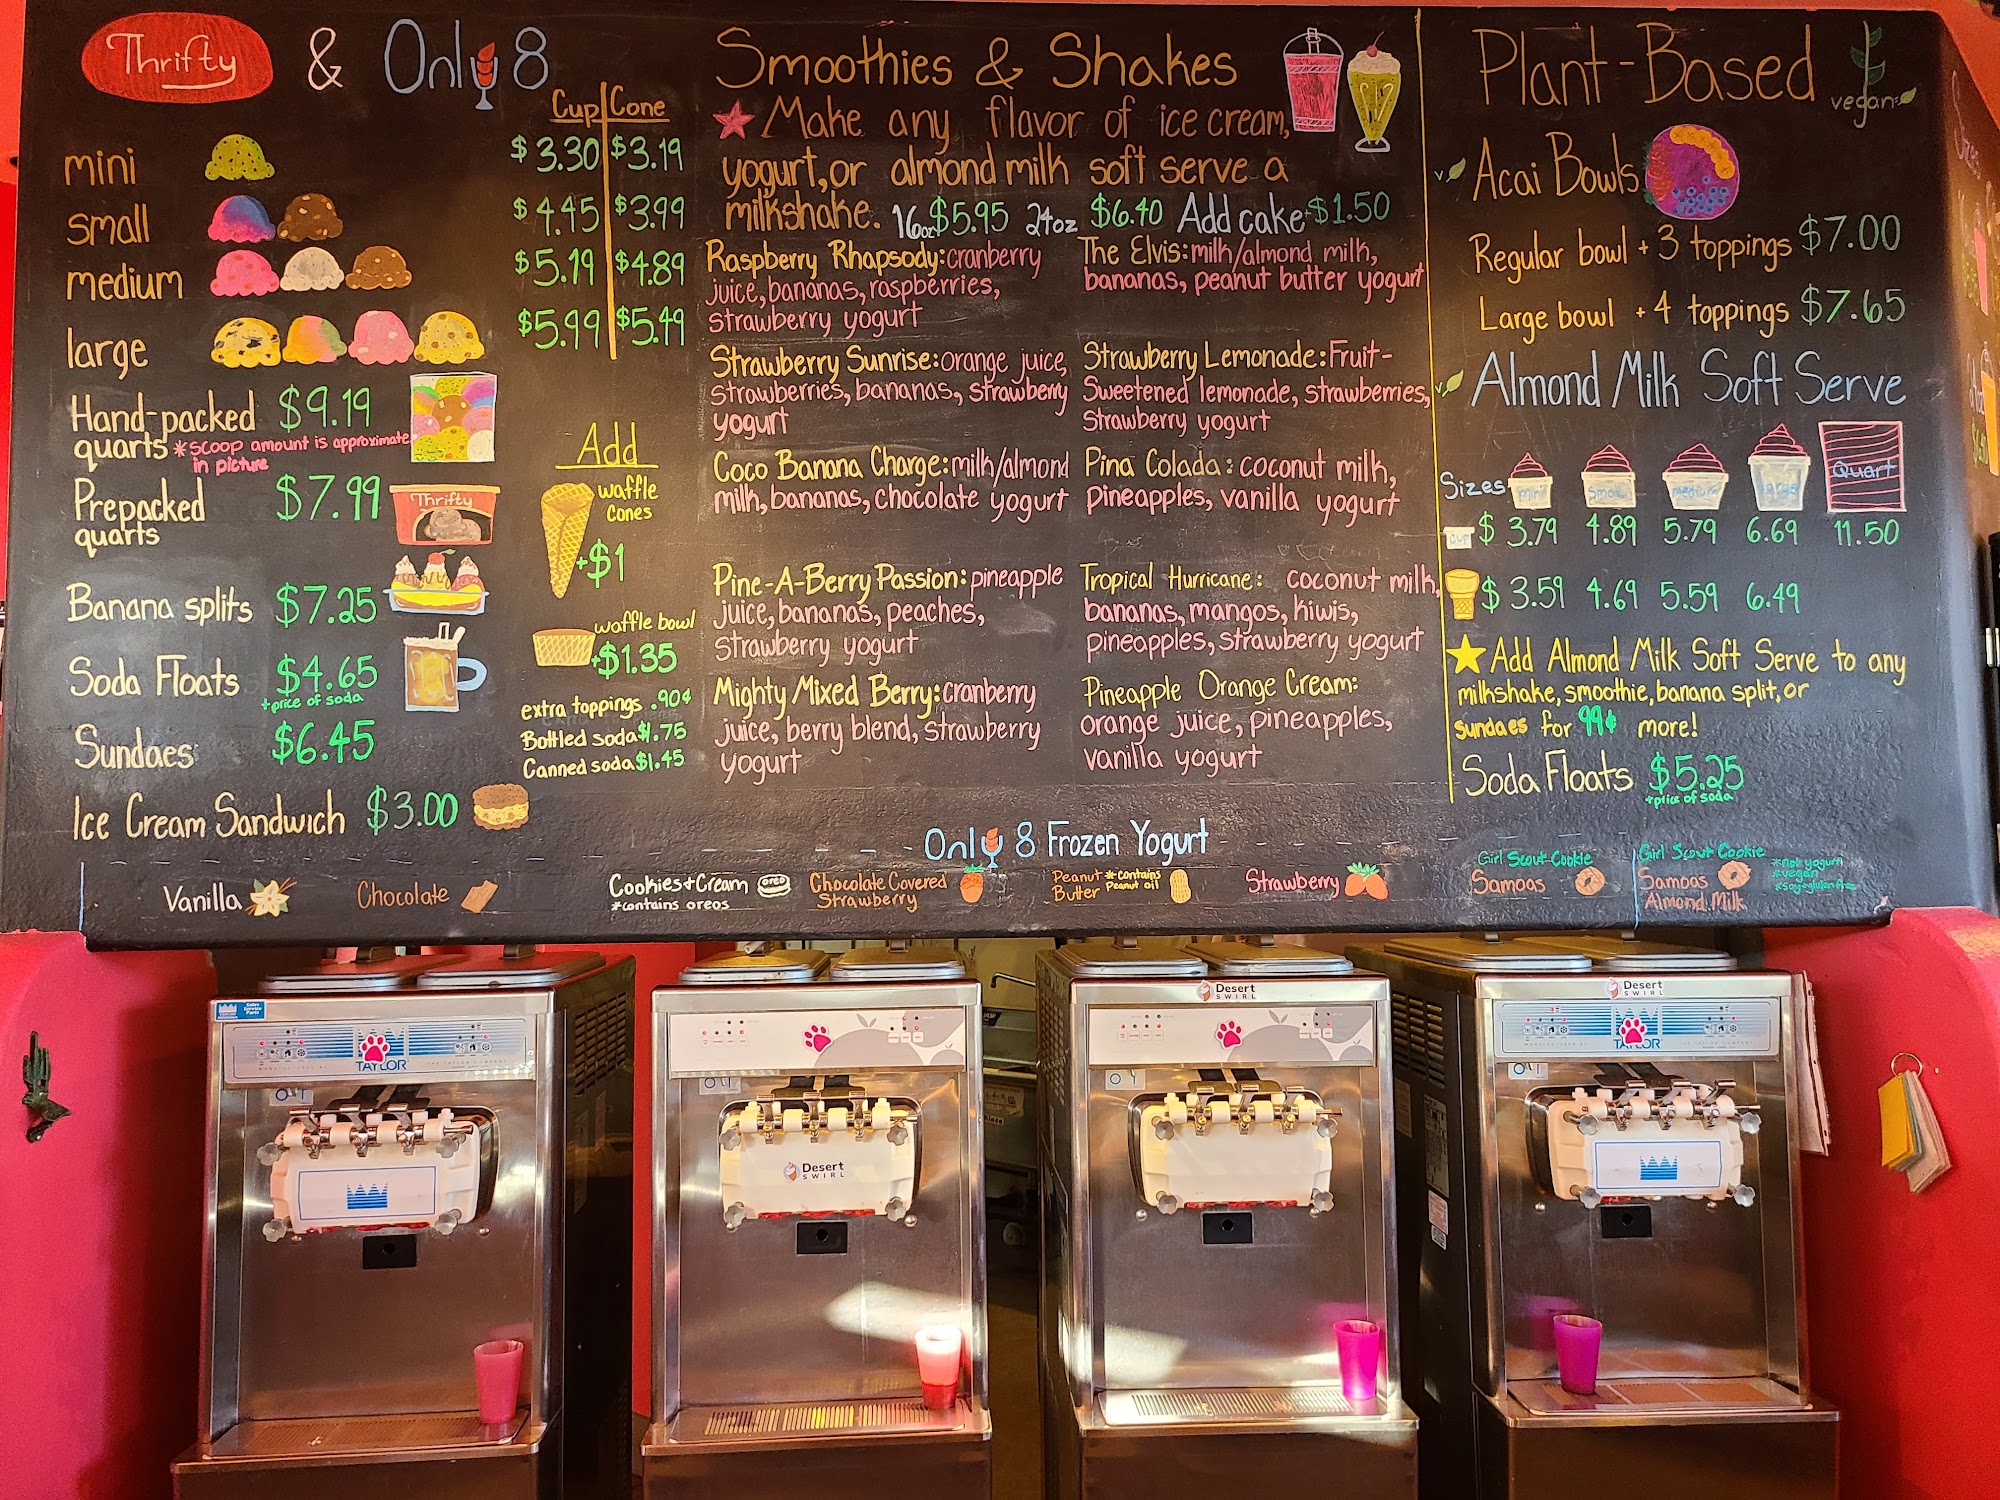 Thrifty & Only 8
Cup Cone
mini $3.30 $3.19
small $4.45 $3.99
medium $5.19 $4.89
large $5.99 $5.49
Hand-packed $9.19
quarts *scoop amount is approximate
in picture
Prepacked $7.99
quarts
Thrifty
Banana splits $7.25
Soda Floats $4.65
+price of soda
Sundaes $6.45
Ice Cream Sandwich $3.00
Add
waffle
cones
+$1
waffle bowl
+$1.35
extra toppings .90¢
Bottled soda $1.75
Canned soda $1.45
Smoothies & Shakes
Make any flavor of ice cream,
yogurt, or almond milk soft serve a
milkshake. 16oz $5.95 24oz $6.40 Add cake+$1.50
Raspberry Rhapsody: cranberry
juice, bananas, raspberries,
strawberry yogurt
Strawberry Sunrise: orange juice,
strawberries, bananas, strawberry
yogurt
Coco Banana Charge: milk/almond
milk, bananas, chocolate yogurt
Pine-A-Berry Passion: pineapple
juice, bananas, peaches,
strawberry yogurt
Mighty Mixed Berry: cranberry
juice, berry blend, strawberry
yogurt
The Elvis: milk/almond milk,
bananas, peanut butter yogurt
Strawberry Lemonade: Fruit-
Sweetened lemonade, strawberries,
strawberry yogurt
Pina Colada: coconut milk,
pineapples, vanilla yogurt
Tropical Hurricane: coconut milk,
bananas, mangos, kiwis,
pineapples, strawberry yogurt
Pineapple Orange Cream:
orange juice, pineapples,
vanilla yogurt
Plant-Based
vegan
Acai Bowls
Regular bowl + 3 toppings $7.00
Large bowl + 4 toppings $7.65
Almond Milk Soft Serve
Sizes mini small medium large Quart
cup $ 3.79 4.89 5.79 6.69 11.50
$ 3.59 4.69 5.59 6.49
Add Almond Milk Soft Serve to any
milkshake, smoothie, banana split, or
sundaes for 99¢ more!
Soda Floats $5.25
+price of soda
Only 8 Frozen Yogurt
Vanilla
Chocolate
Cookies+Cream
*contains oreos
oreo
Chocolate Covered
Strawberry
Peanut *contains
Butter Peanut oil
Strawberry
Girl Scout Cookie
Samoas
Girl Scout Cookie
Samoas
Almond Milk
*not yogurt
*vegan
*soy+gluten free
TAYLOR
Desert
SWIRL
Desert
SWIRL
Desert
SWIRL
TAYLOR